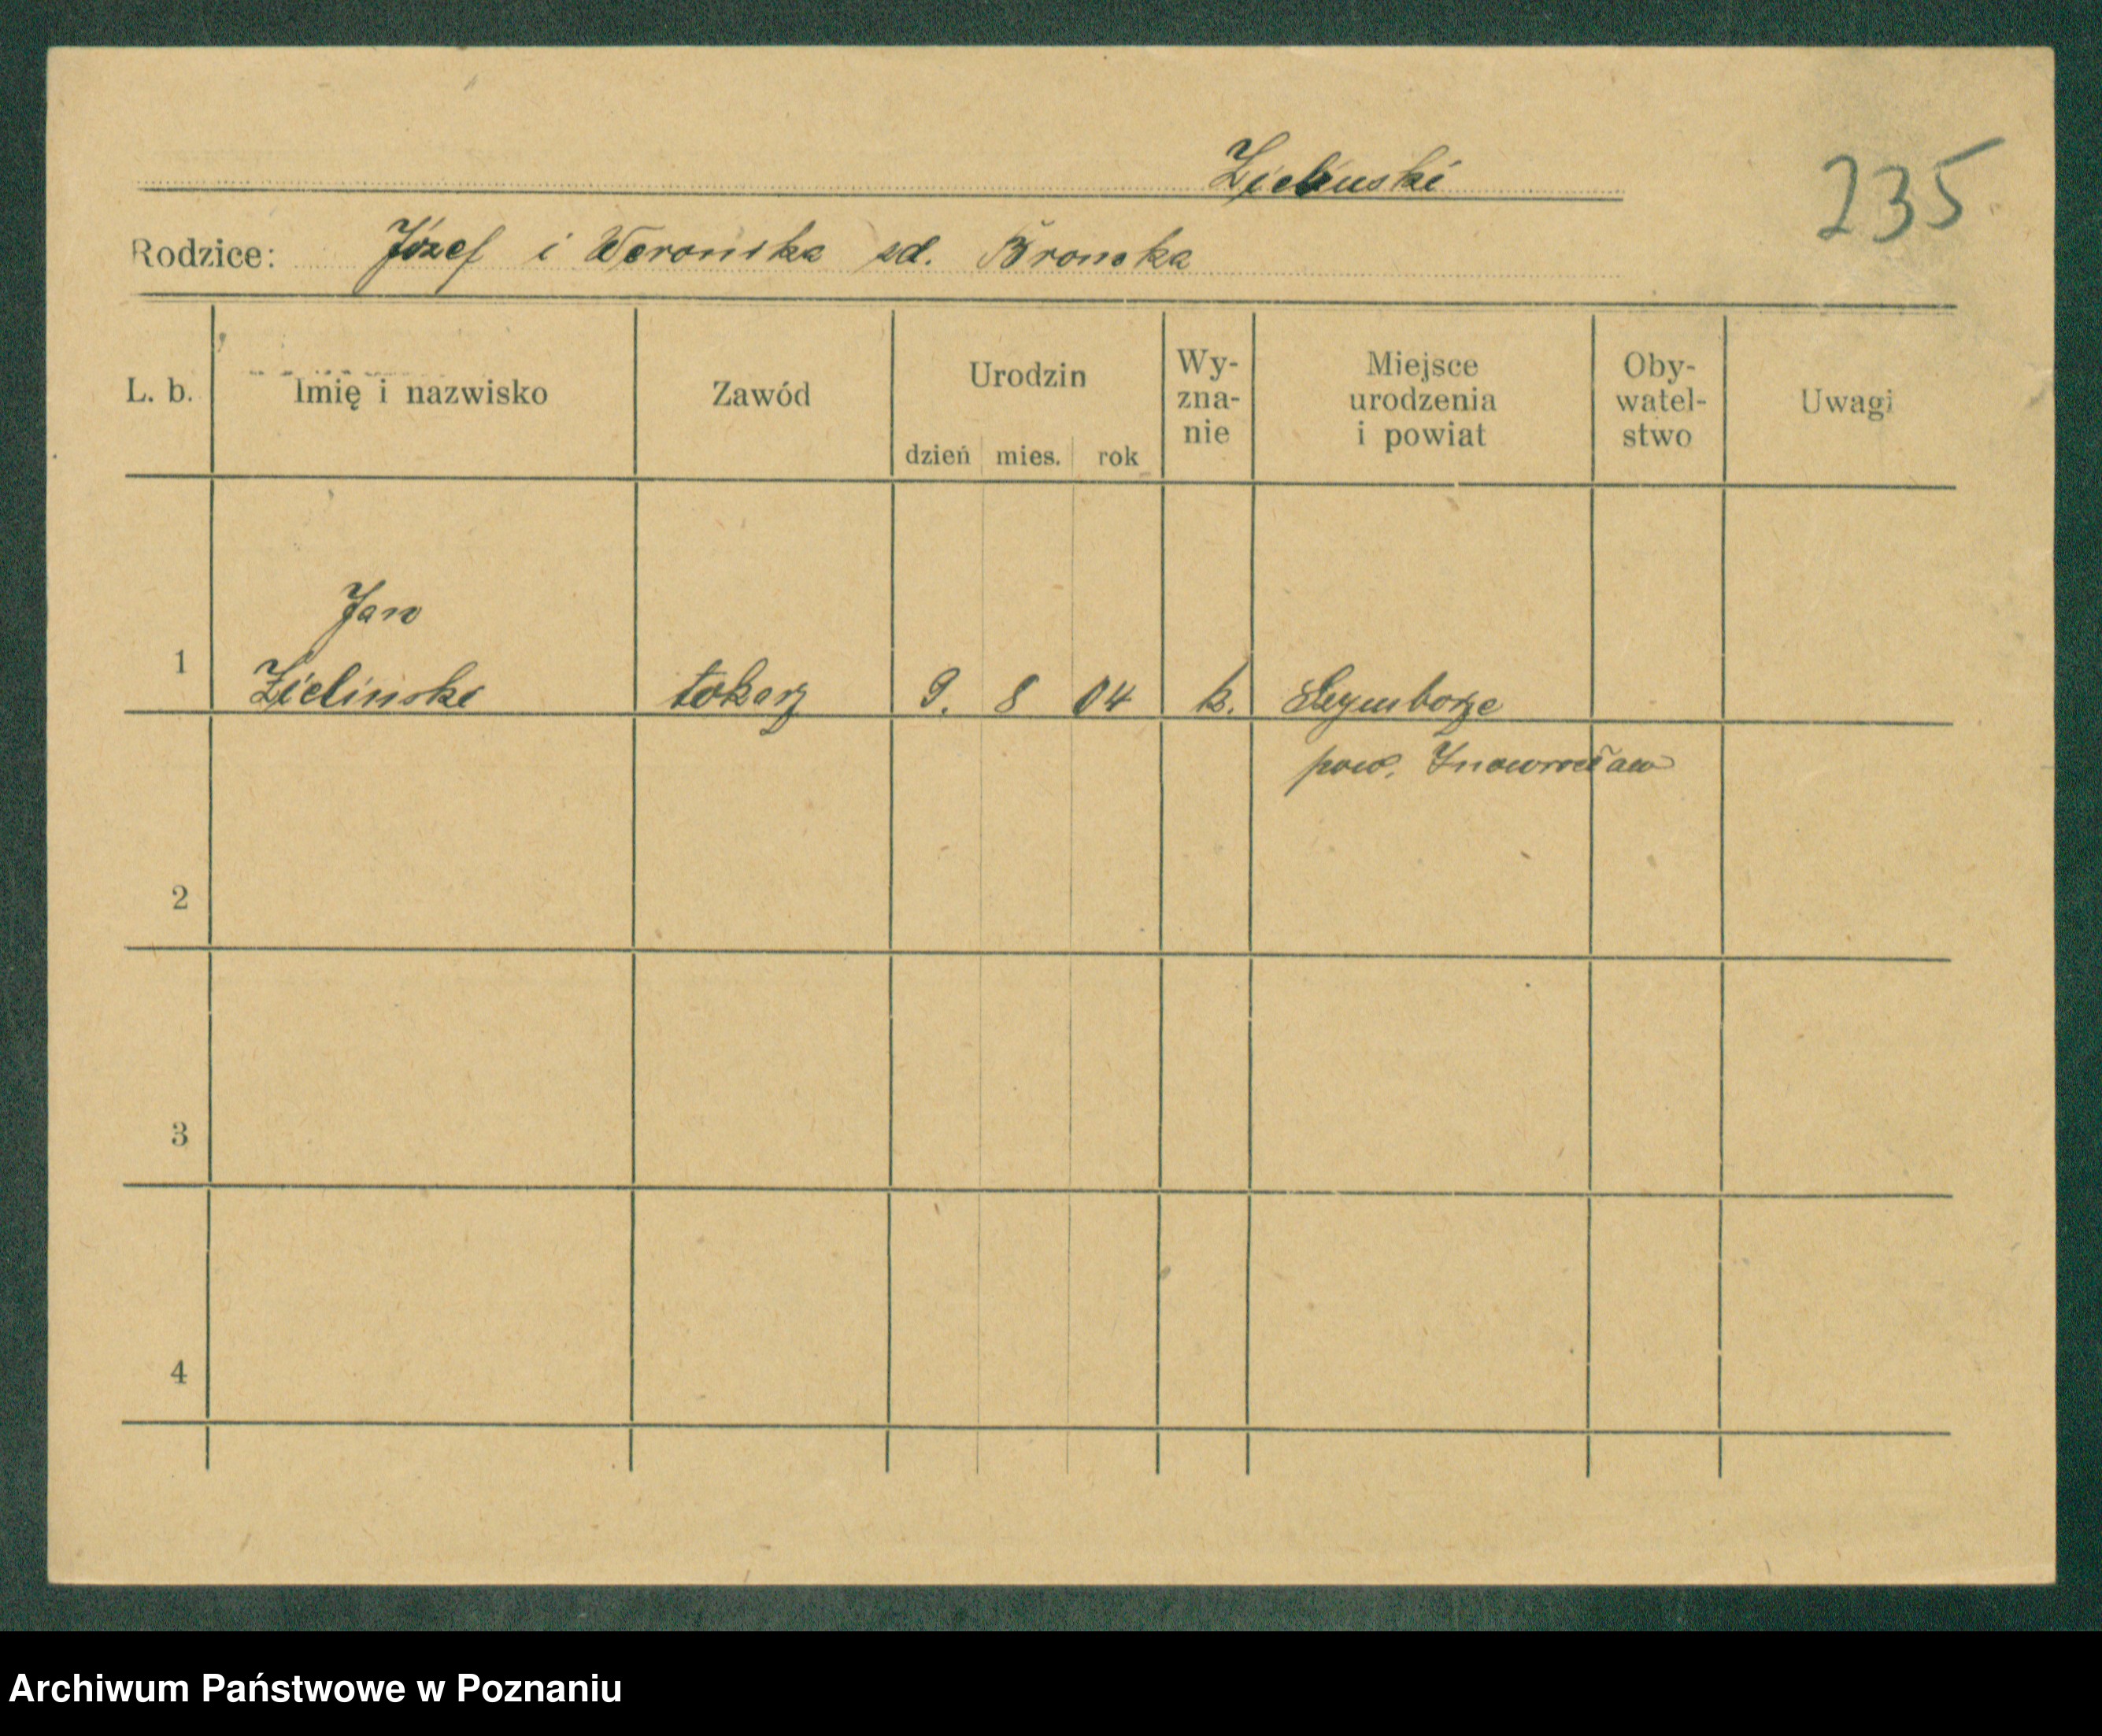 Zieliński
235
Rodzice: Józef i Weronika zd. Brońska
L. b. Imię i nazwisko Zawód Urodzin dzień mies. rok Wy-zna-nie Miejsce urodzenia i powiat Oby-watel-stwo Uwagi
Jan
1 Zieliński tokarz 9. 8 04 k. Szymborze
pow. Inowrocław
2
3
4
Archiwum Państwowe w Poznaniu